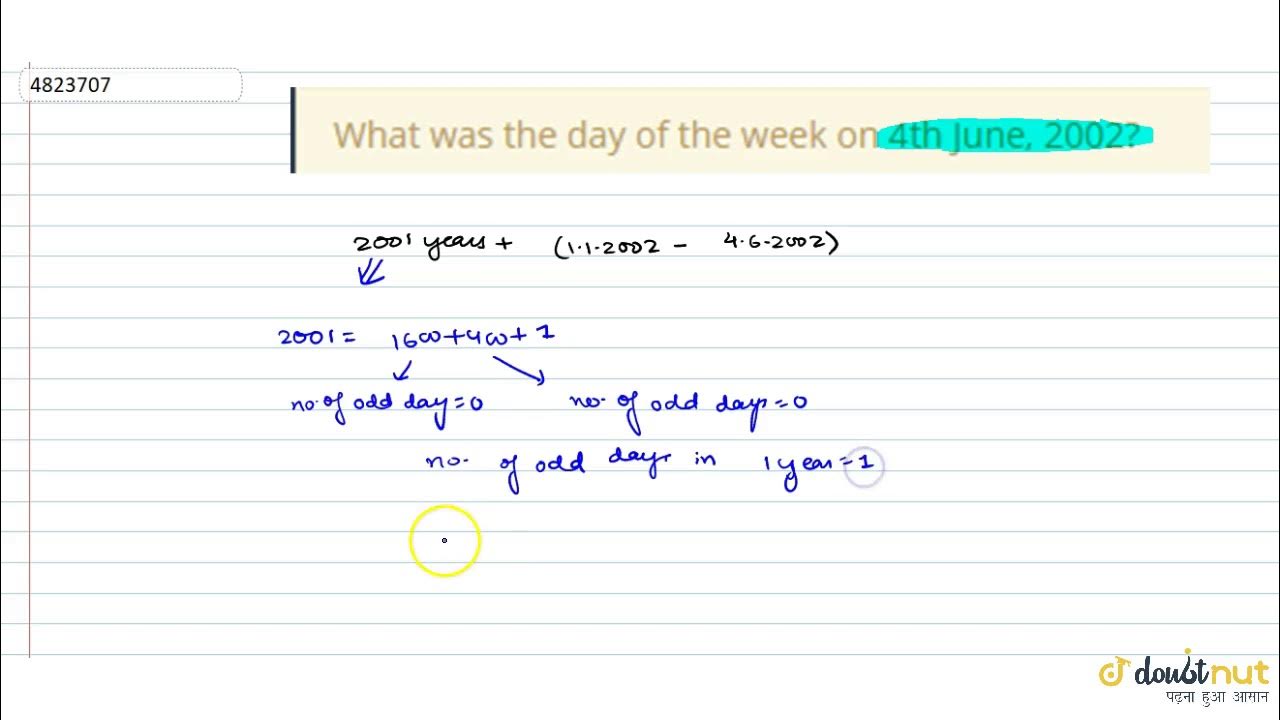 4823707
What was the day of the week on 4th June, 2002?
2001 years + (1.1.2002 - 4.6.2002)
2001 = 1600+400+1
no. of odd day=0 no. of odd days=0
no. of odd days in 1 year=1
doubtnut
पढ़ना हुआ आसान